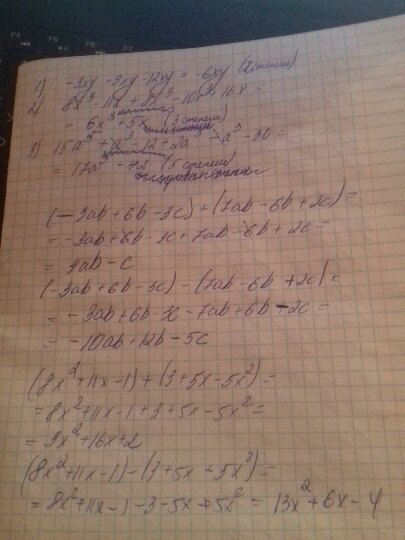 1) -3xy +9xy -12xy = -6xy (2 степени)
2) 8x³ - 11x + 8x³ - 10x³ + 16x =
= 6x³ + 5x (3 степени)
3) 15a⁵ + a³ - 12 + 2a⁵ - a³ - 30 =
= 17a⁵ - 42 (5 степени)
(-3ab+6b-3c)+(7ab-6b+2c)=
= -3ab+6b-3c+7ab-6b+2c=
= 4ab-c
(-3ab+6b-3c)-(7ab-6b+2c)=
= -3ab+6b-3c-7ab+6b-2c=
= -10ab+12b-5c
(8x²+11x-1)+(3+5x-5x²)=
= 8x²+11x-1+3+5x-5x²=
= 3x²+16x+2
(8x²+11x-1)-(3+5x+5x²)=
= 8x²+11x-1-3-5x+5x² = 13x²+6x-4